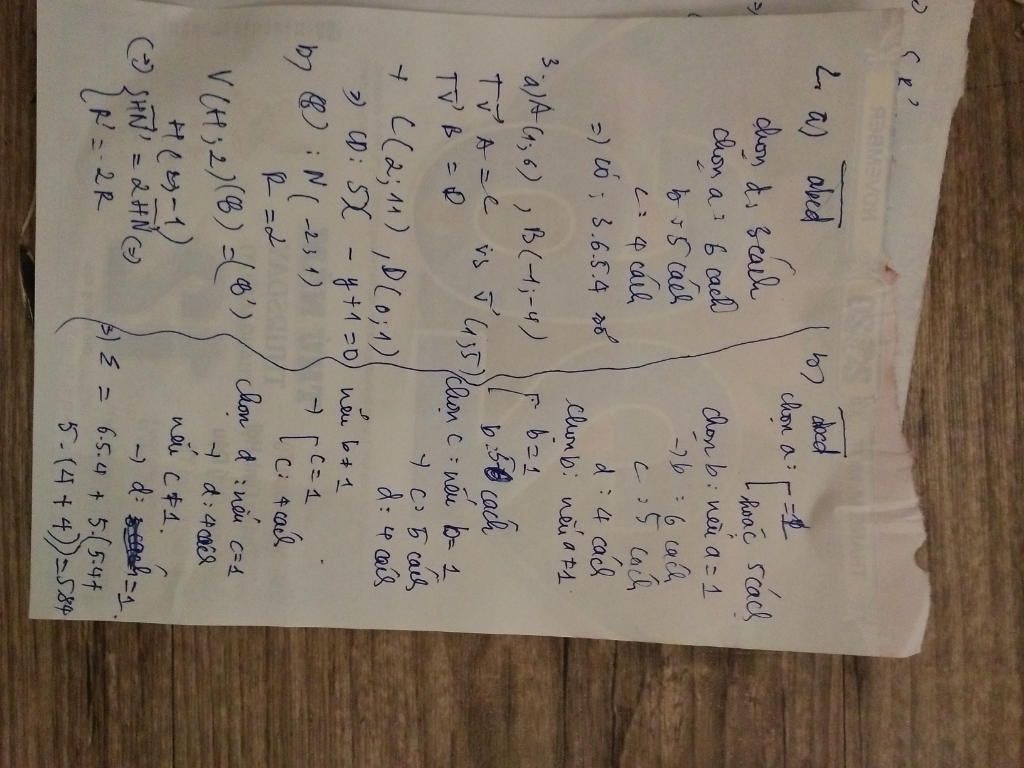 2. a) abcd
chọn d: 3 cách
chọn a: 6 cách
b: 5 cách
c: 4 cách
=) có: 3.6.5.4 số
3. a) A(1;6), B(-1;-4)
Tv A = C vs v (1;5)
Tv B = D
+ C(2;11), D(0;1)
=) CD: 5x - y + 1 = 0
b) (C): N(-2;1)
R = 2
V(H;2)(C) = (C')
H( ;-1)
(=) { HN' = 2HN (=)
R' = 2R
b) abcd
chọn a: [ = 1
hoặc 5 cách
chọn b: nếu a = 1
-) b: 6 cách
c: 5 cách
d: 4 cách
chọn b: nếu a ≠ 1
[ b = 1
b: 5 cách
chọn c: nếu b = 1
+ c: 5 cách
d: 4 cách
nếu b ≠ 1
-) [ c = 1
c: 4 cách
chọn d: nếu c = 1
+ d: 4 cách
nếu c ≠ 1.
-) d: = 1.
=) Σ = 6.5.4 + 5.(5.4 +
5.(4 + 4)) = 584
{ R'
NOVEMBER